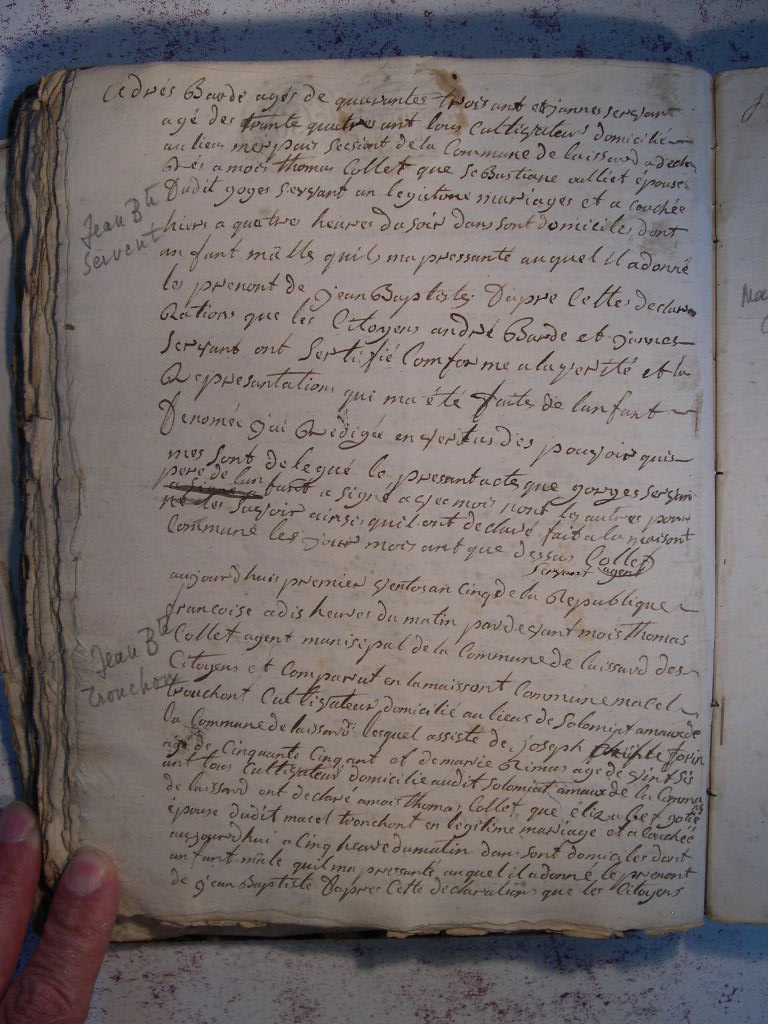 Adrés Barde agés de quarantes trois ant et jannes servant
agé des trante quatres ant tous Cultivateur domicilié
au lieu mer pais secsiont de la Commune de laissard a decla
Rés a mois thomas Collet que Sebastiane valliet épouses
Dudit goges servant an legistime mariages et a couchée
hiers a quatre heures du soir dans sont domicile, dont
Jean Bte
Servent
un fant mâlle quils ma pressanté auquel il a donné
les prenont de jean Baptiste; Dapre Cette declara
Rations que les Citoyens andré Barde et jannes
Servant ont Sertifié Comforme a la verité et la
Representations qui ma été faite de lanfant
Denomée jai Redigée en vertus dies pouvoir quis
mes sont delegué le pressant acte que gorges servan
pere de lanfant a signé avec mois nont les autres pour
ne les savoir ainsi quil ont declaré fait a la maisont
Commune les jour mois ant que dessus Collet
Servant agent
aujourdhuis premier ventos an Cinq de la Republique
francoise a dis heures du matin par devant mois Thomas
Collet agent municipal de la Commune de laissard des
Jean Bte
Tronchon
Citoyens et Comparut en la maissont Commune macel
trouchont Cultivateur domicilié au lieus de Solomiat amaux de
la Commune de laissard lesquel assisté de joseph forin
agé de Cinquante Cinq ant et de marie Rimas age de vint sis
ant tous Cultivateur domicilie audit Solomiat amaux de la Commu
de laissard ont declaré a mois Thomas Collet que élizabet
épouse dudit macel tronchont en legitime mariage et a couchée
aujourdhui a Cinq heure du matin dans sont domicile dont
un fant mâle quil ma pressanté auquel il a donné le prenont
de jean Baptiste Daprer Cette declarations que les Citoyens